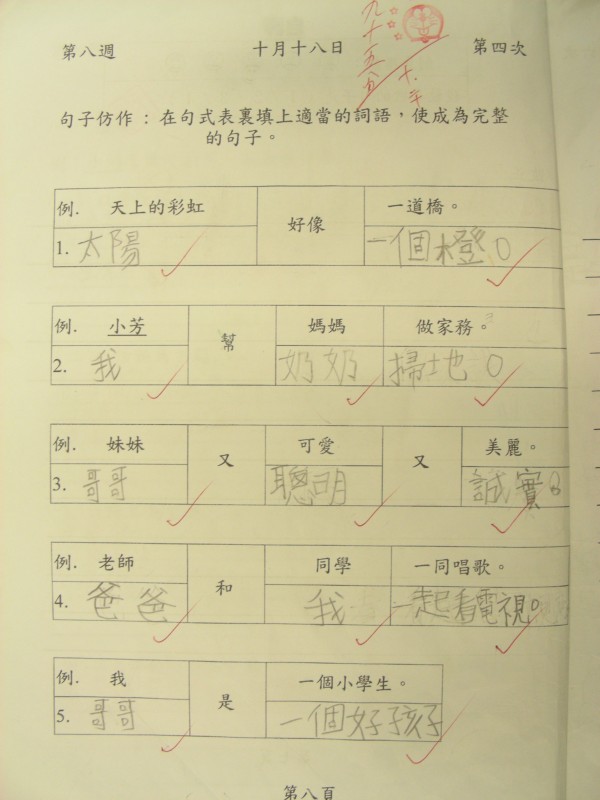 第八週 十月十八日 第四次
九十五分
十.六
句子仿作：在句式表裏填上適當的詞語，使成為完整
的句子。
例. 天上的彩虹 好像 一道橋。
1. 太陽 一個橙。
例. 小芳 幫 媽媽 做家務。
2. 我 奶奶 掃地。
例. 妹妹 又 可愛 又 美麗。
3. 哥哥 聰明 誠實。
例. 老師 和 同學 一同唱歌。
4. 爸爸 我 一起看電視。
例. 我 是 一個小學生。
5. 哥哥 一個好孩子
第八頁